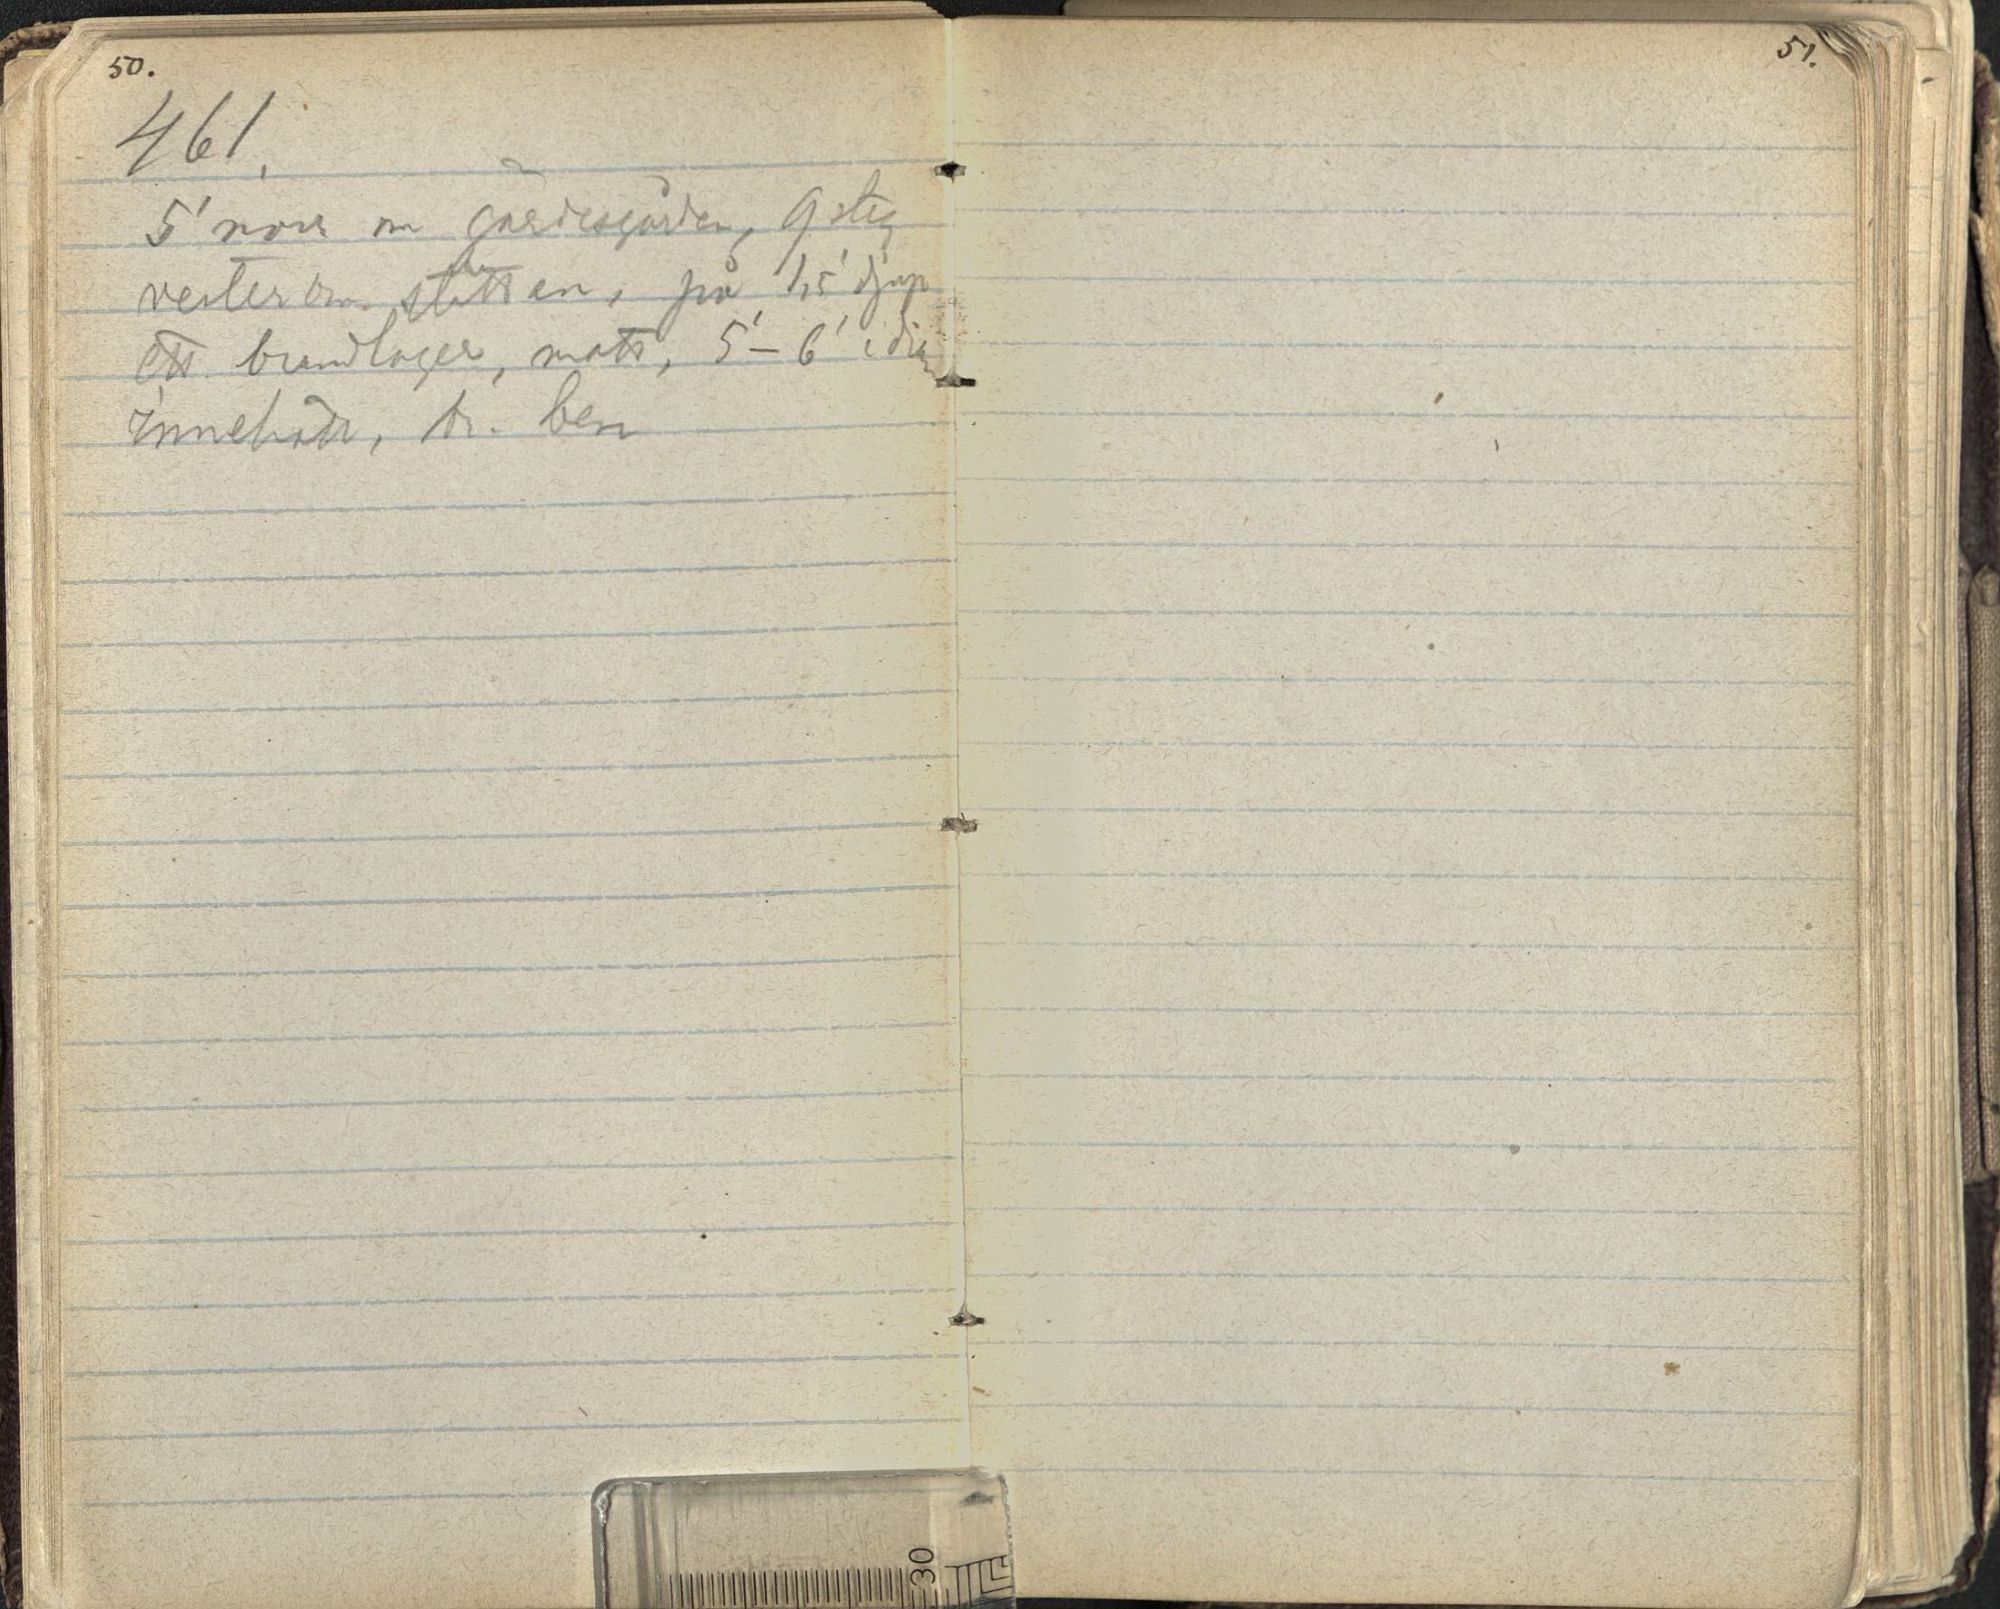 50.
461.
5' norr om gärdesgården, 9 steg
vester om stättan, på 1,5' djup
ett brandlager, matt, 5'-6' i dia
innehöll, br. ben
51.
30